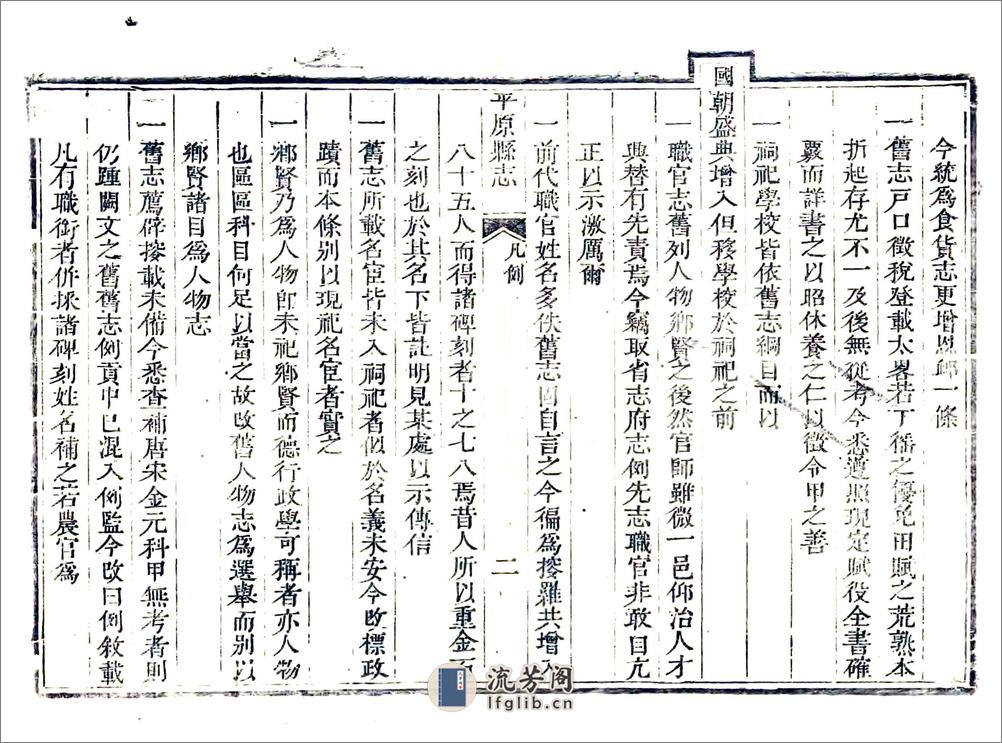 今統為食貨志更增恩卹一條
一舊志戸口徵稅登載太畧若丁徭之優免田賦之荒熟本
折起存尤不一及後無從考今悉遵照現定賦役全書確
覈而詳書之以昭休養之仁以徵令甲之善
一祠祀學校皆依舊志綱目而以
國朝盛典增入但移學校於祠祀之前
一職官志舊列人物鄉賢之後然官師雖微一邑仰治人才
興替有先責焉今竊取省志府志例先志職官非敢自亢
正以示激厲爾
平原縣志 凡例 二
一前代職官姓名多佚舊志固自言之今徧為搜羅共增入
八十五人而得諸碑刻者十之七八焉昔人所以重金石
之刻也於其名下皆註明見某處以示傳信
一舊志所載名宦皆未入祠祀者似於名義未安今改標政
蹟而本條别以現祀名宦者實之
一鄉賢乃為人物即未祀鄉賢而德行政學可稱者亦人物
也區區科目何足以當之故改舊人物志為選舉而别以
鄉賢諸目為人物志
一舊志薦辟搜載未備今悉查補唐宋金元科甲無考者則
仍踵闕文之舊舊志例貢中已混入例監今改曰例敘載
凡有職銜者併採諸碑刻姓名補之若農官為
流芳阁
lfglib.cn